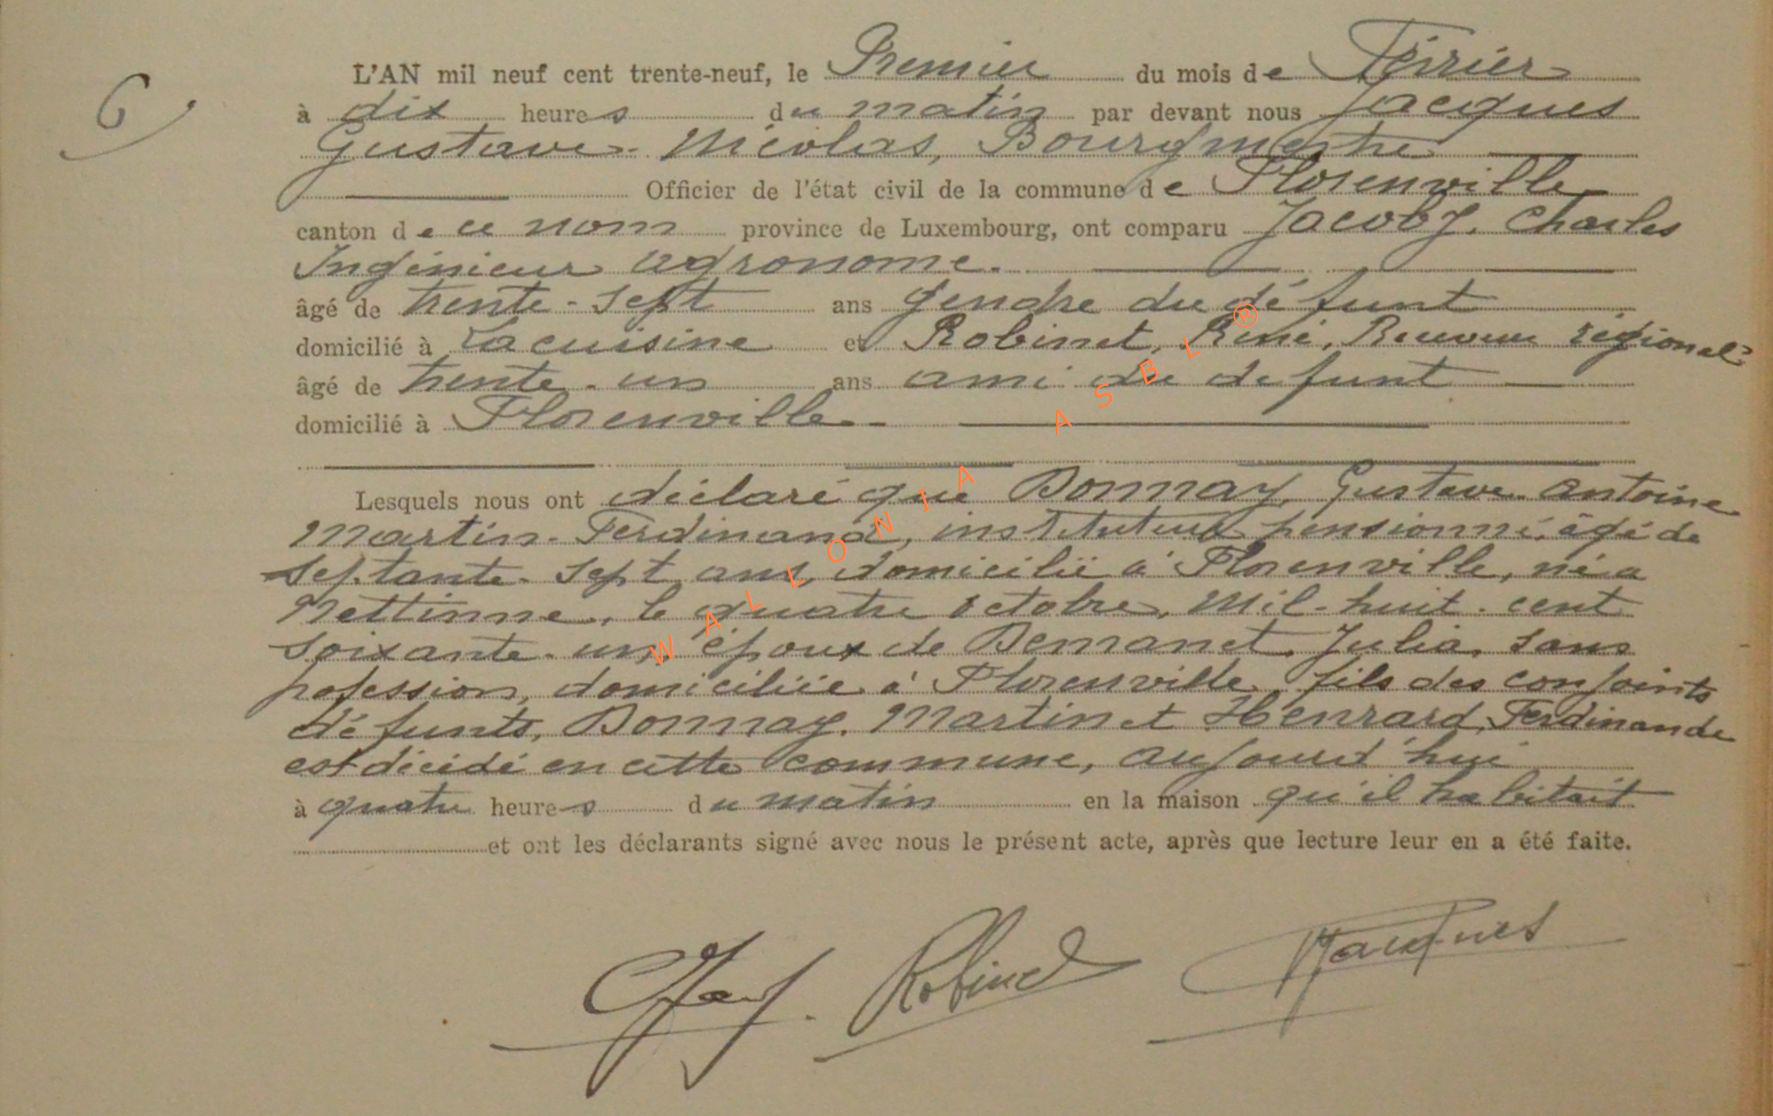 6
L'AN mil neuf cent trente-neuf, le Premier du mois de Février
à dix heures du matin par devant nous Jacques
Gustave-Nicolas, Bourgmestre
Officier de l'état civil de la commune de Florenville
canton de ce nom province de Luxembourg, ont comparu Jacoby, Charles
Ingénieur agronome.
âgé de trente-sept ans gendre du défunt
domicilié à Lacuisine et Robinet, René, Receveur régional
âgé de trente-un ans ami du défunt
domicilié à Florenville.
Lesquels nous ont déclaré que Bonnay, Gustave-Antoine
Martin-Ferdinand, instituteur pensionné, âgé de
septante-sept ans, domicilié à Florenville, né à
Nettinne, le quatre octobre, mil-huit-cent
soixante-un, époux de Demanet, Julia, sans
profession, domiciliée à Florenville, fils des conjoints
défunts, Bonnay, Martin et Henrard, Ferdinande
est décédé en cette commune, aujourd'hui
à quatre heures du matin en la maison qu'il habitait
et ont les déclarants signé avec nous le présent acte, après que lecture leur en a été faite.
Robinet Jacques
WALLONIA ASBL ®